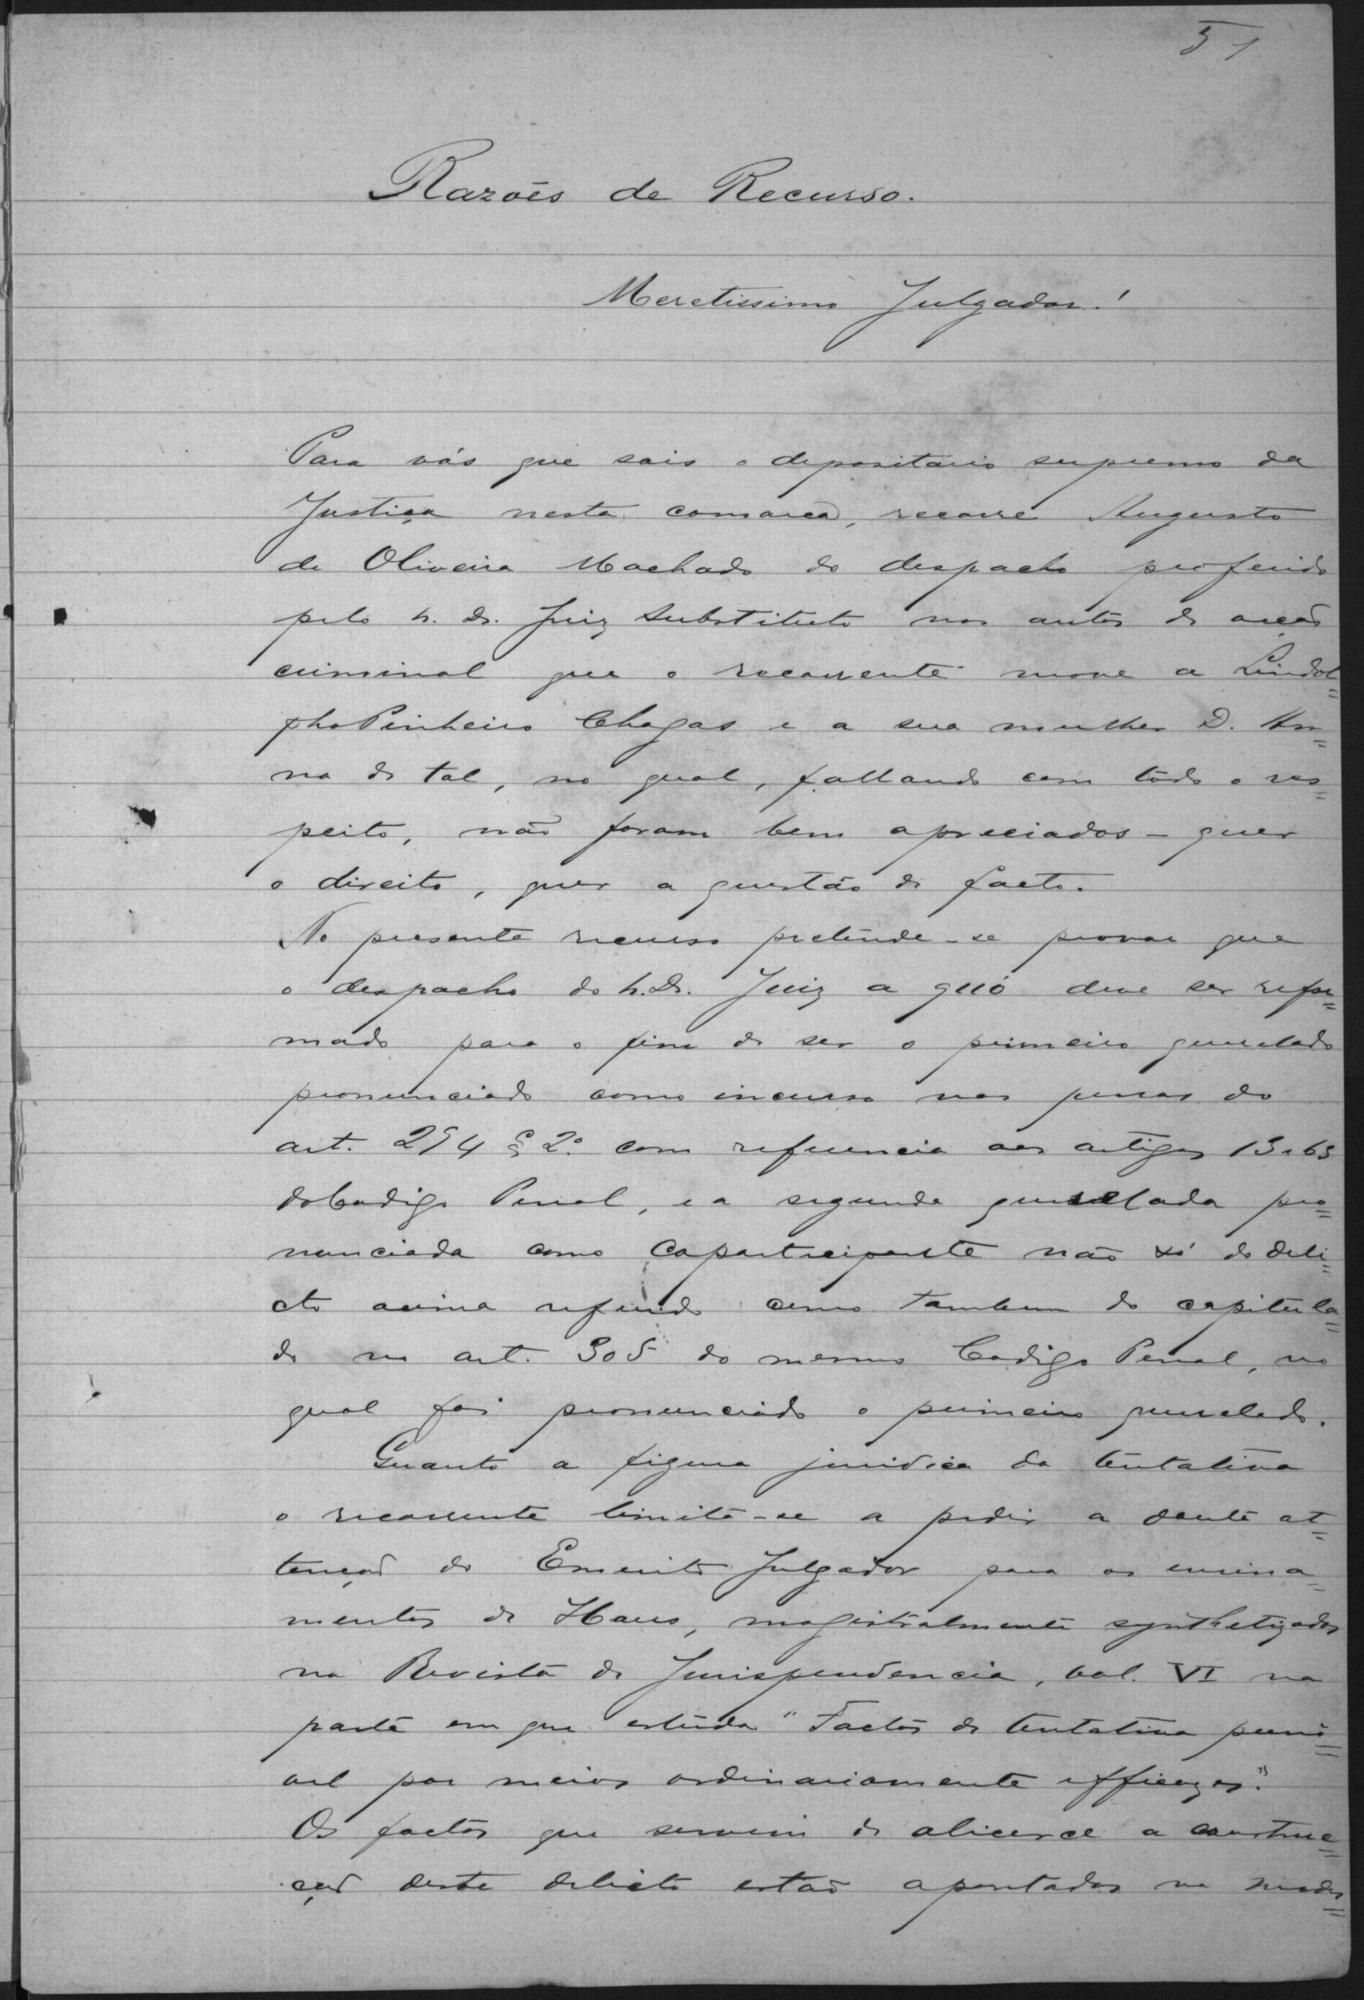 51
Razões de Recurso.
Meretissimo Julgador!
Para vós que sois o depositario supremo da
Justiça nesta comarca, recorre Augusto
de Oliveira Machado do despacho proferido
pelo h. Dr. Juiz Substituto nos autos de acção
criminal que o recorrente move a Lindol=
pho Pinheiro Chagas e a sua mulher D. An=
na de tal, no qual, fallando com todo o res=
peito, não foram bem apreciados - quer
o direito, quer a questão de facto.
No presente recurso pretende-se provar que
o despacho do h. Dr. Juiz a quó deve ser refor=
mado para o fim de ser o primeiro querelado
pronunciado como incurso nas penas do
art. 294 § 2º com referencia aos artigos 13 e 63
do Codigo Penal, e a segunda querelada pro=
nunciada como coparticipante não só do deli=
cto acima referido como tambem do capitula=
do no art. 305 do mesmo Codigo Penal, no
qual foi pronunciado o primeiro querelado.
Quanto a figura juridica da tentativa
o recorrente limita-se a pedir a douta at=
tenção do Emerito Julgador para os ensina=
mentos de Haus, magistralmente synthetizados
na Revista de Jurisprudencia, vol. VI na
parte em que estuda "Factos de tentativa puni=
vel por meios ordinariamente efficazes."
Os factos que servem de alicerce a construc=
ção deste delicto estão apontados no